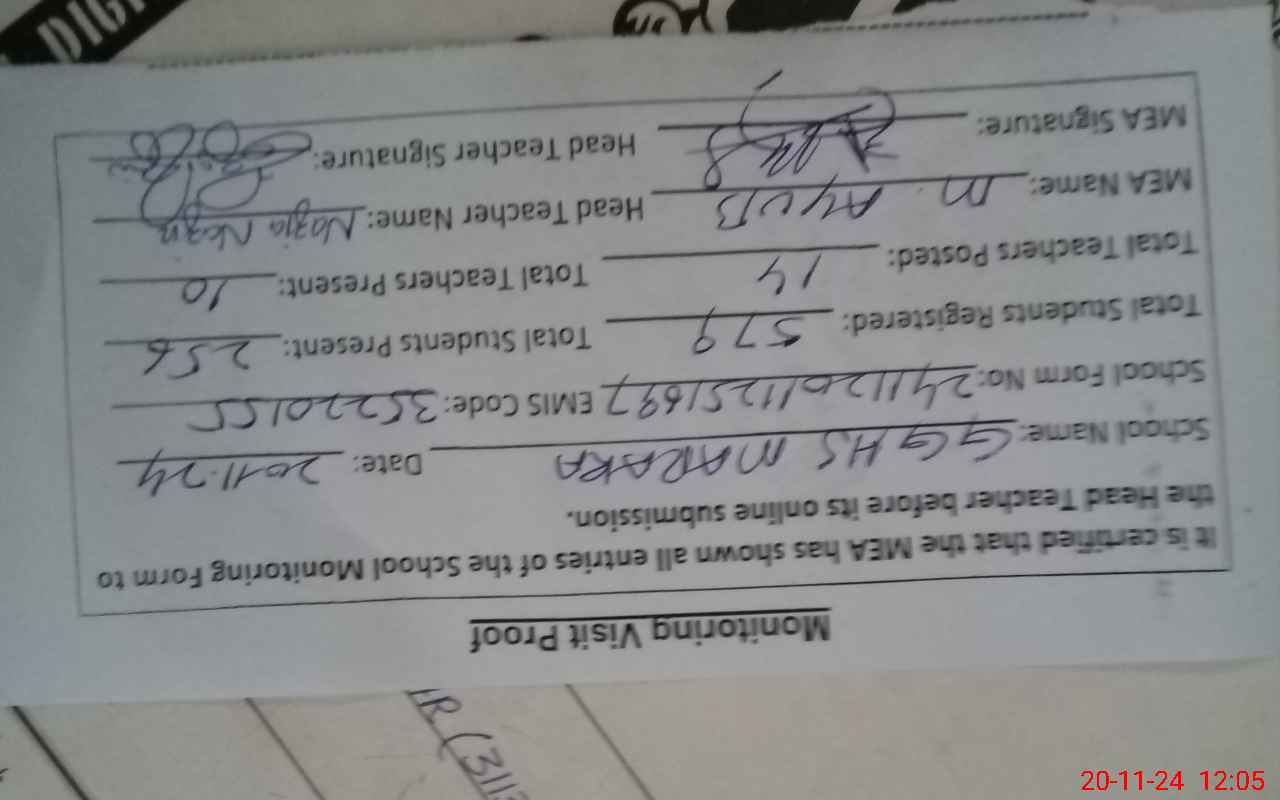 Monitoring Visit Proof
It is certified that the MEA has shown all entries of the School Monitoring Form to
the Head Teacher before its online submission.
School Name: GGHS MARAKA Date: 20-11-24
School Form No: 24112011251697 EMIS Code: 35220155
Total Students Registered: 579 Total Students Present: 256
Total Teachers Posted: 14 Total Teachers Present: 10
MEA Name: M. AYUB Head Teacher Name: Nazia
MEA Signature: Head Teacher Signature:
20-11-24 12:05